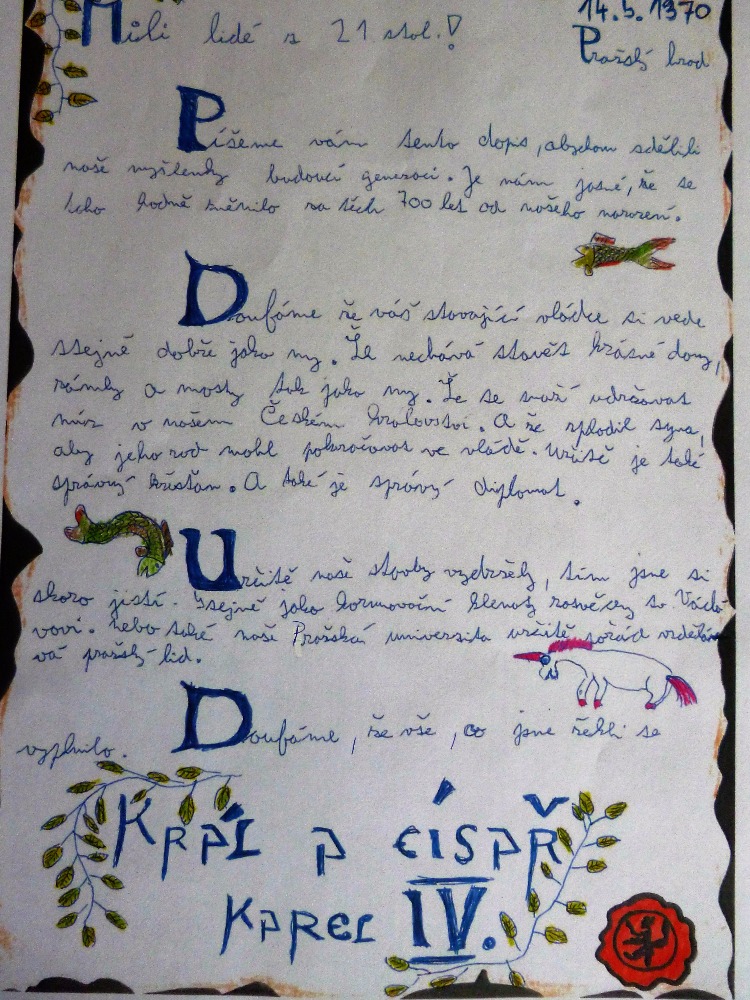 14.5.1370
Milí lidé z 21 stol.!
Pražský hrad
Píšeme vám tento dopis, abychom sdělili
naše myšlenky budoucí generaci. Je nám jasné, že se
toho hodně změnilo za těch 700 let od našeho narození.
Doufáme že váš stávající vládce si vede
stejně dobře jako my. Že nechává stavět krásné domy,
zámky a mosty tak jako my. Že se snaží udržovat
mír v našem Českém království. A že zplodil syna,
aby jeho rod mohl pokračovat ve vládě. Určitě je také
správný křesťan. A také je správný diplomat.
Určitě naše stavby vzdržely, tím jsme si
skoro jistí. Stejně jako korunovační klenoty zasvěceny sv. Václa
vovi. Nebo také naše Pražská universita určitě pořád vzdělá
vá pražský lid.
Doufáme, že vše, co jsme řekli se
vyplnilo.
Král a císař
Karel IV.